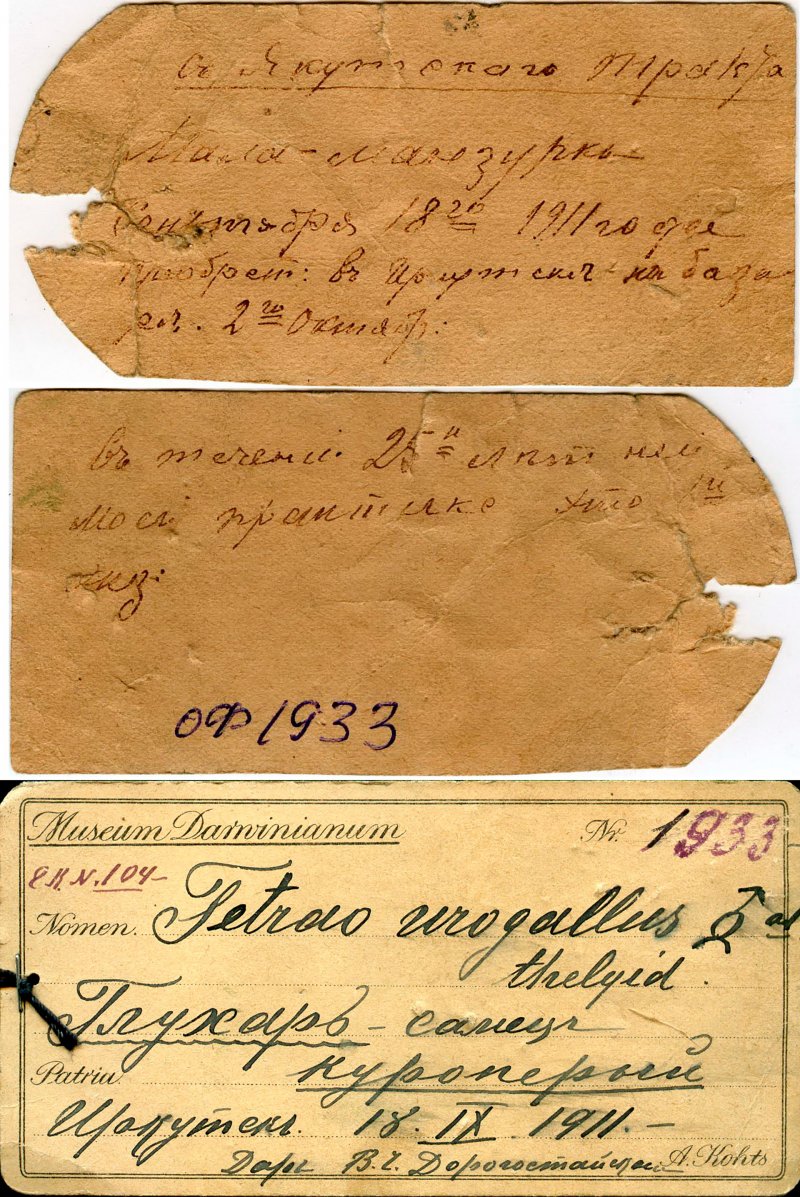 съ Якутского тракта
Мало-маюзурка
Сентября 18го 1911 года
приобрет: въ Иркутске на база
ре. 2го Октяб:
въ течении 25и лет
моей практике это 1й
экз:
ОФ 1933
Museum Darwinianum Nr. 1933
E.K.N. 104
Nomen. Tetrao urogallus ♂ ad
thelyid.
Глухарь - самецъ
Patria куроперый
Иркутскъ. 18. IX. 1911.-
Даръ В.Ч. Дорогостайскаго A. Kohts